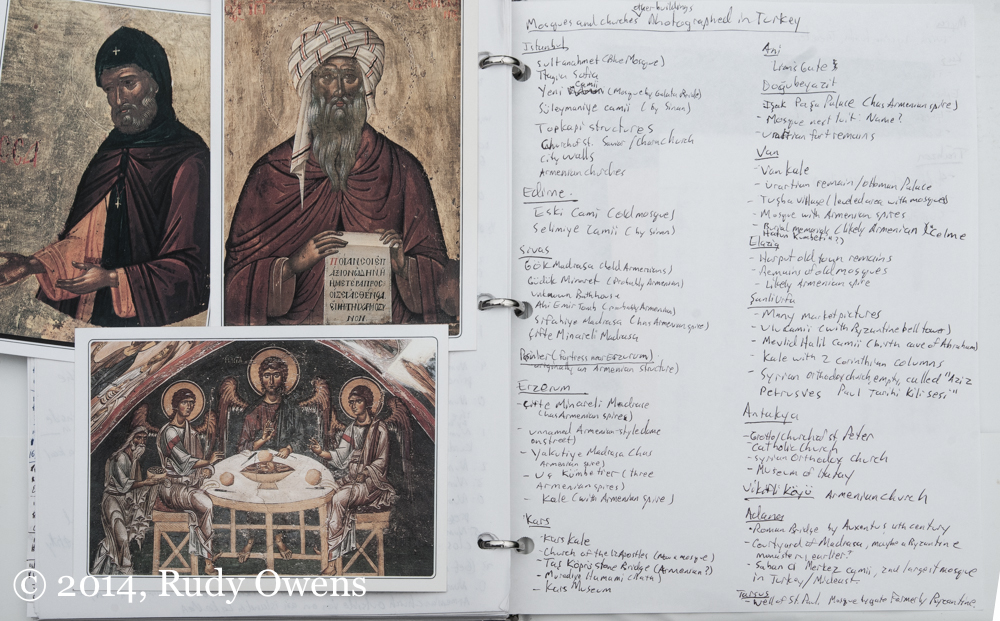 ΠΟΙΑΝ
Mosques and churches other buildings Photographed in Turkey
Istanbul
Sultanahmet (Blue Mosque)
Hagia Sofia
Yeni Camii (Mosque by Galata Bride)
Süleymaniye camii (by Sinan)
Topkapi structures
Church of St. Savior / Chora church
City walls
Armenian churches
Edirne
Eski Cami (old mosque)
Selimiye Camii (by Sinan)
Sivas
Gök Madrasa (old Armenians)
Güdük Minaret (Probably Armenian)
unknown Bathhouse
Ahi Emir Tomb (probably Armenian)
Sifahiye Madrasa (has Armenian spire)
Çifte Minareli Madrasa
(fortress near Erzurum)
originally an Armenian structure)
Erzerum
- Çifte Minareli Madrase
(has Armenian spires)
- unnamed Armenian-style dome
on street)
- Yakutiye Madrasa (has
Armenian spire)
- Üç Kümbetler (three
Armenian spires)
- Kale (with Armenian spire)
Kars
- Kars Kale
- Church of the 12 Apostles (now a mosque)
- Tas Koprü Stone Bridge (Armenian?)
- Muradiye Hamami
- Kars Museum
Ani
Lions Gate
Doğubeyazit
Işak Paşa Palace (has Armenian spire)
- Mosque next to it: Name?
- Urartian fort remains
Van
- Van Kale
- Urartian remain / Ottoman Palace
- Tusba village (leveled area with mosques)
- Mosque with Armenian spires
- Burial memorials (likely Armenian
Elazig
- Harput old town remains
- Remains of old mosques
- Likely Armenian spire
Sanliurfa
- Many market pictures
- Ulu Camii (with Byzantine bell tower)
- Mevlid Halil Camii (with cave of Abraham)
- Kale with 2 Corinthian columns
- Syrian Orthodox church, empty, called "Aziz
Petrus ves Paul Tarihi Kilisesi"
Antakya
- Grotto/church of St. Peter
- Catholic church
- Syrian Orthodox church
- Museum of Hatay
Vikifli Köyü Armenian church
Adana
- Roman Bridge by Auxentus 4th century
- Courtyard of Madrasa, maybe a Byzantine
monastery earlier?
- Saban ci Merkez camii, 2nd largest mosque
in Turkey/Mideast.
Tarsus
- Well of St. Paul. Mosque by gate Formerly Byzantine.
© 2014, Rudy Owens